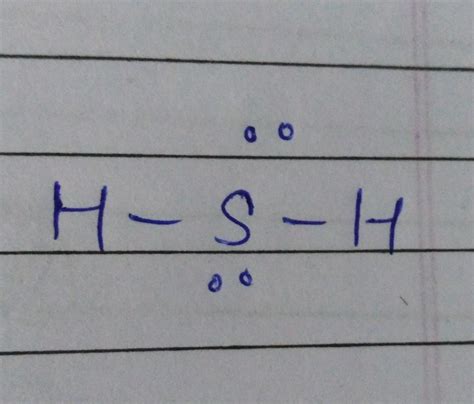 H - S - H